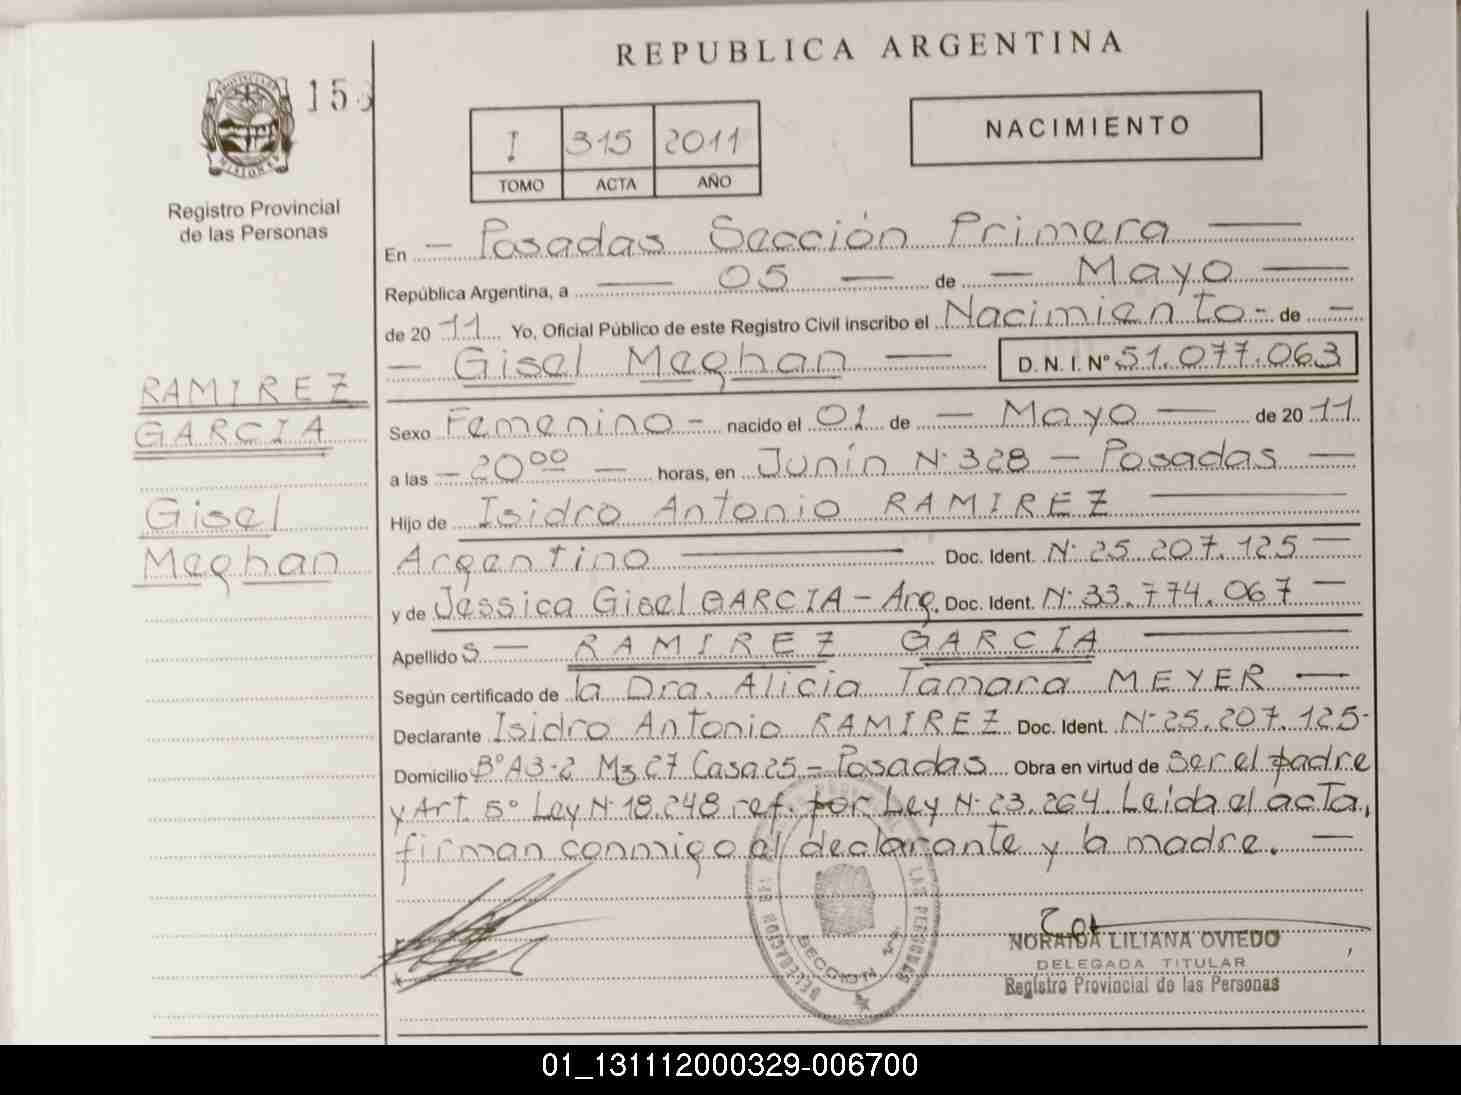 REPUBLICA ARGENTINA
PROVINCIA DE MISIONES
15
Registro Provincial
de las Personas
I 315 2011
TOMO ACTA AÑO
NACIMIENTO
En — Posadas Sección Primera —
República Argentina, a — 05 — de — Mayo —
de 2011 Yo, Oficial Público de este Registro Civil inscribo el Nacimiento - de —
— Gisel Meghan — D. N. I. Nº 51.077.063
RAMIREZ
GARCIA
Gisel
Meghan
Sexo Femenino - nacido el 01 de — Mayo — de 2011
a las — 20⁰⁰ — horas, en Junín Nº 328 — Posadas —
Hijo de Isidro Antonio RAMIREZ —
Argentino — Doc. Ident. Nº 25.207.125 —
y de Jéssica Gisel GARCIA — Arg. Doc. Ident. Nº 33.774.067 —
Apellido s — RAMIREZ GARCIA —
Según certificado de la Dra. Alicia Tamara MEYER —
Declarante Isidro Antonio RAMIREZ Doc. Ident. Nº 25.207.125-
Domicilio Bº A3-2 Mz C7 Casa 25 - Posadas Obra en virtud de ser el padre
y Art. 5º Ley Nº 18.248 ref. por Ley Nº 23.264 Leída el acta,
firman conmigo el declarante y la madre. —
DELEGACION
SECCION 1ª
NORAIDA LILIANA OVIEDO
DELEGADA TITULAR
Registro Provincial de las Personas
01_131112000329-006700